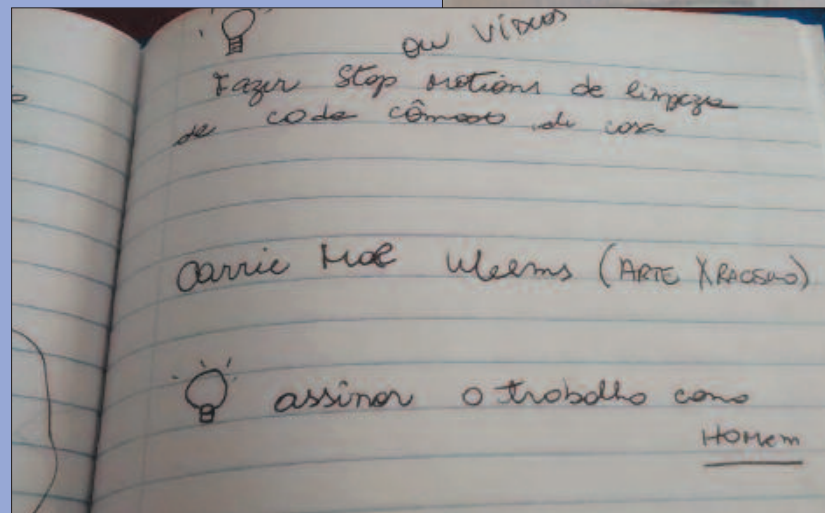 ou vídeos
Fazer Stop motions de limpeza
de cada cômodo de casa
Carrie Mae Weems (ARTE X RACISMO)
assinar o trabalho como
HOMem